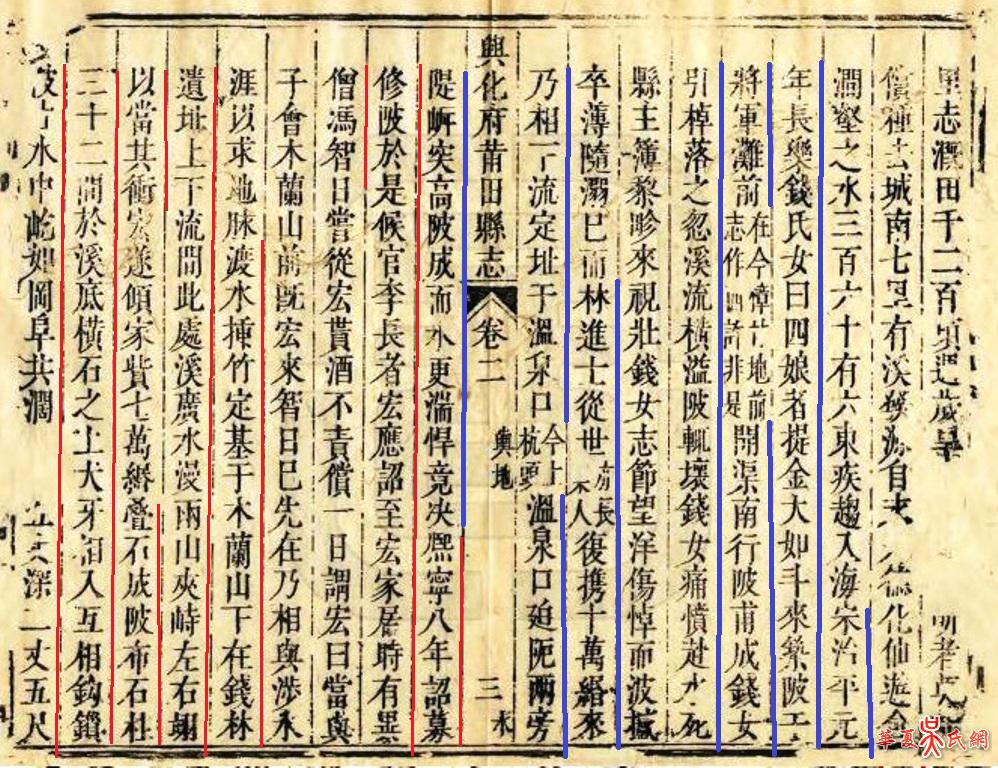 里志溉田千二百頃遇歲旱
城南七里有溪發源自 德化仙遊
澗壑之水三百六十有六東疾趨入海宋治平元
年長樂錢氏女曰四娘者提金大如斗來築陂于
將軍灘前在今樟林地前志作四許非是開渠南行陂甫成錢女
引棹落之忽溪流橫溢陂輒壞錢女痛憤赴水死
縣主簿黎畛來視壯錢女志節望洋傷悼而波撼
卒薄隨溺巳而林進士從世亦長樂人復携十萬緡來
乃相下流定址于溫泉口今上杭頭溫泉口迫阨兩旁
興化府莆田縣志 卷二 輿地 水 三
隄岸突高陂成而水更湍悍竟决熙寧八年詔募
修陂於是候官李長者宏應詔至宏家居時有異
僧馮智日嘗從宏貰酒不責償一日謂宏曰當與
子會木蘭山前既宏來智日巳先在乃相與涉水
涯以求地脉渡水揷竹定基于木蘭山下在錢林
遺址上下流間此處溪廣水漫兩山夾峙左右翊
以當其衝宏遂傾家貲七萬緡叠石成陂布石柱
三十二間於溪底橫石之上犬牙相入互相鈎鎖
水中屹如岡阜共濶 丈深二丈五尺
華夏吳氏網